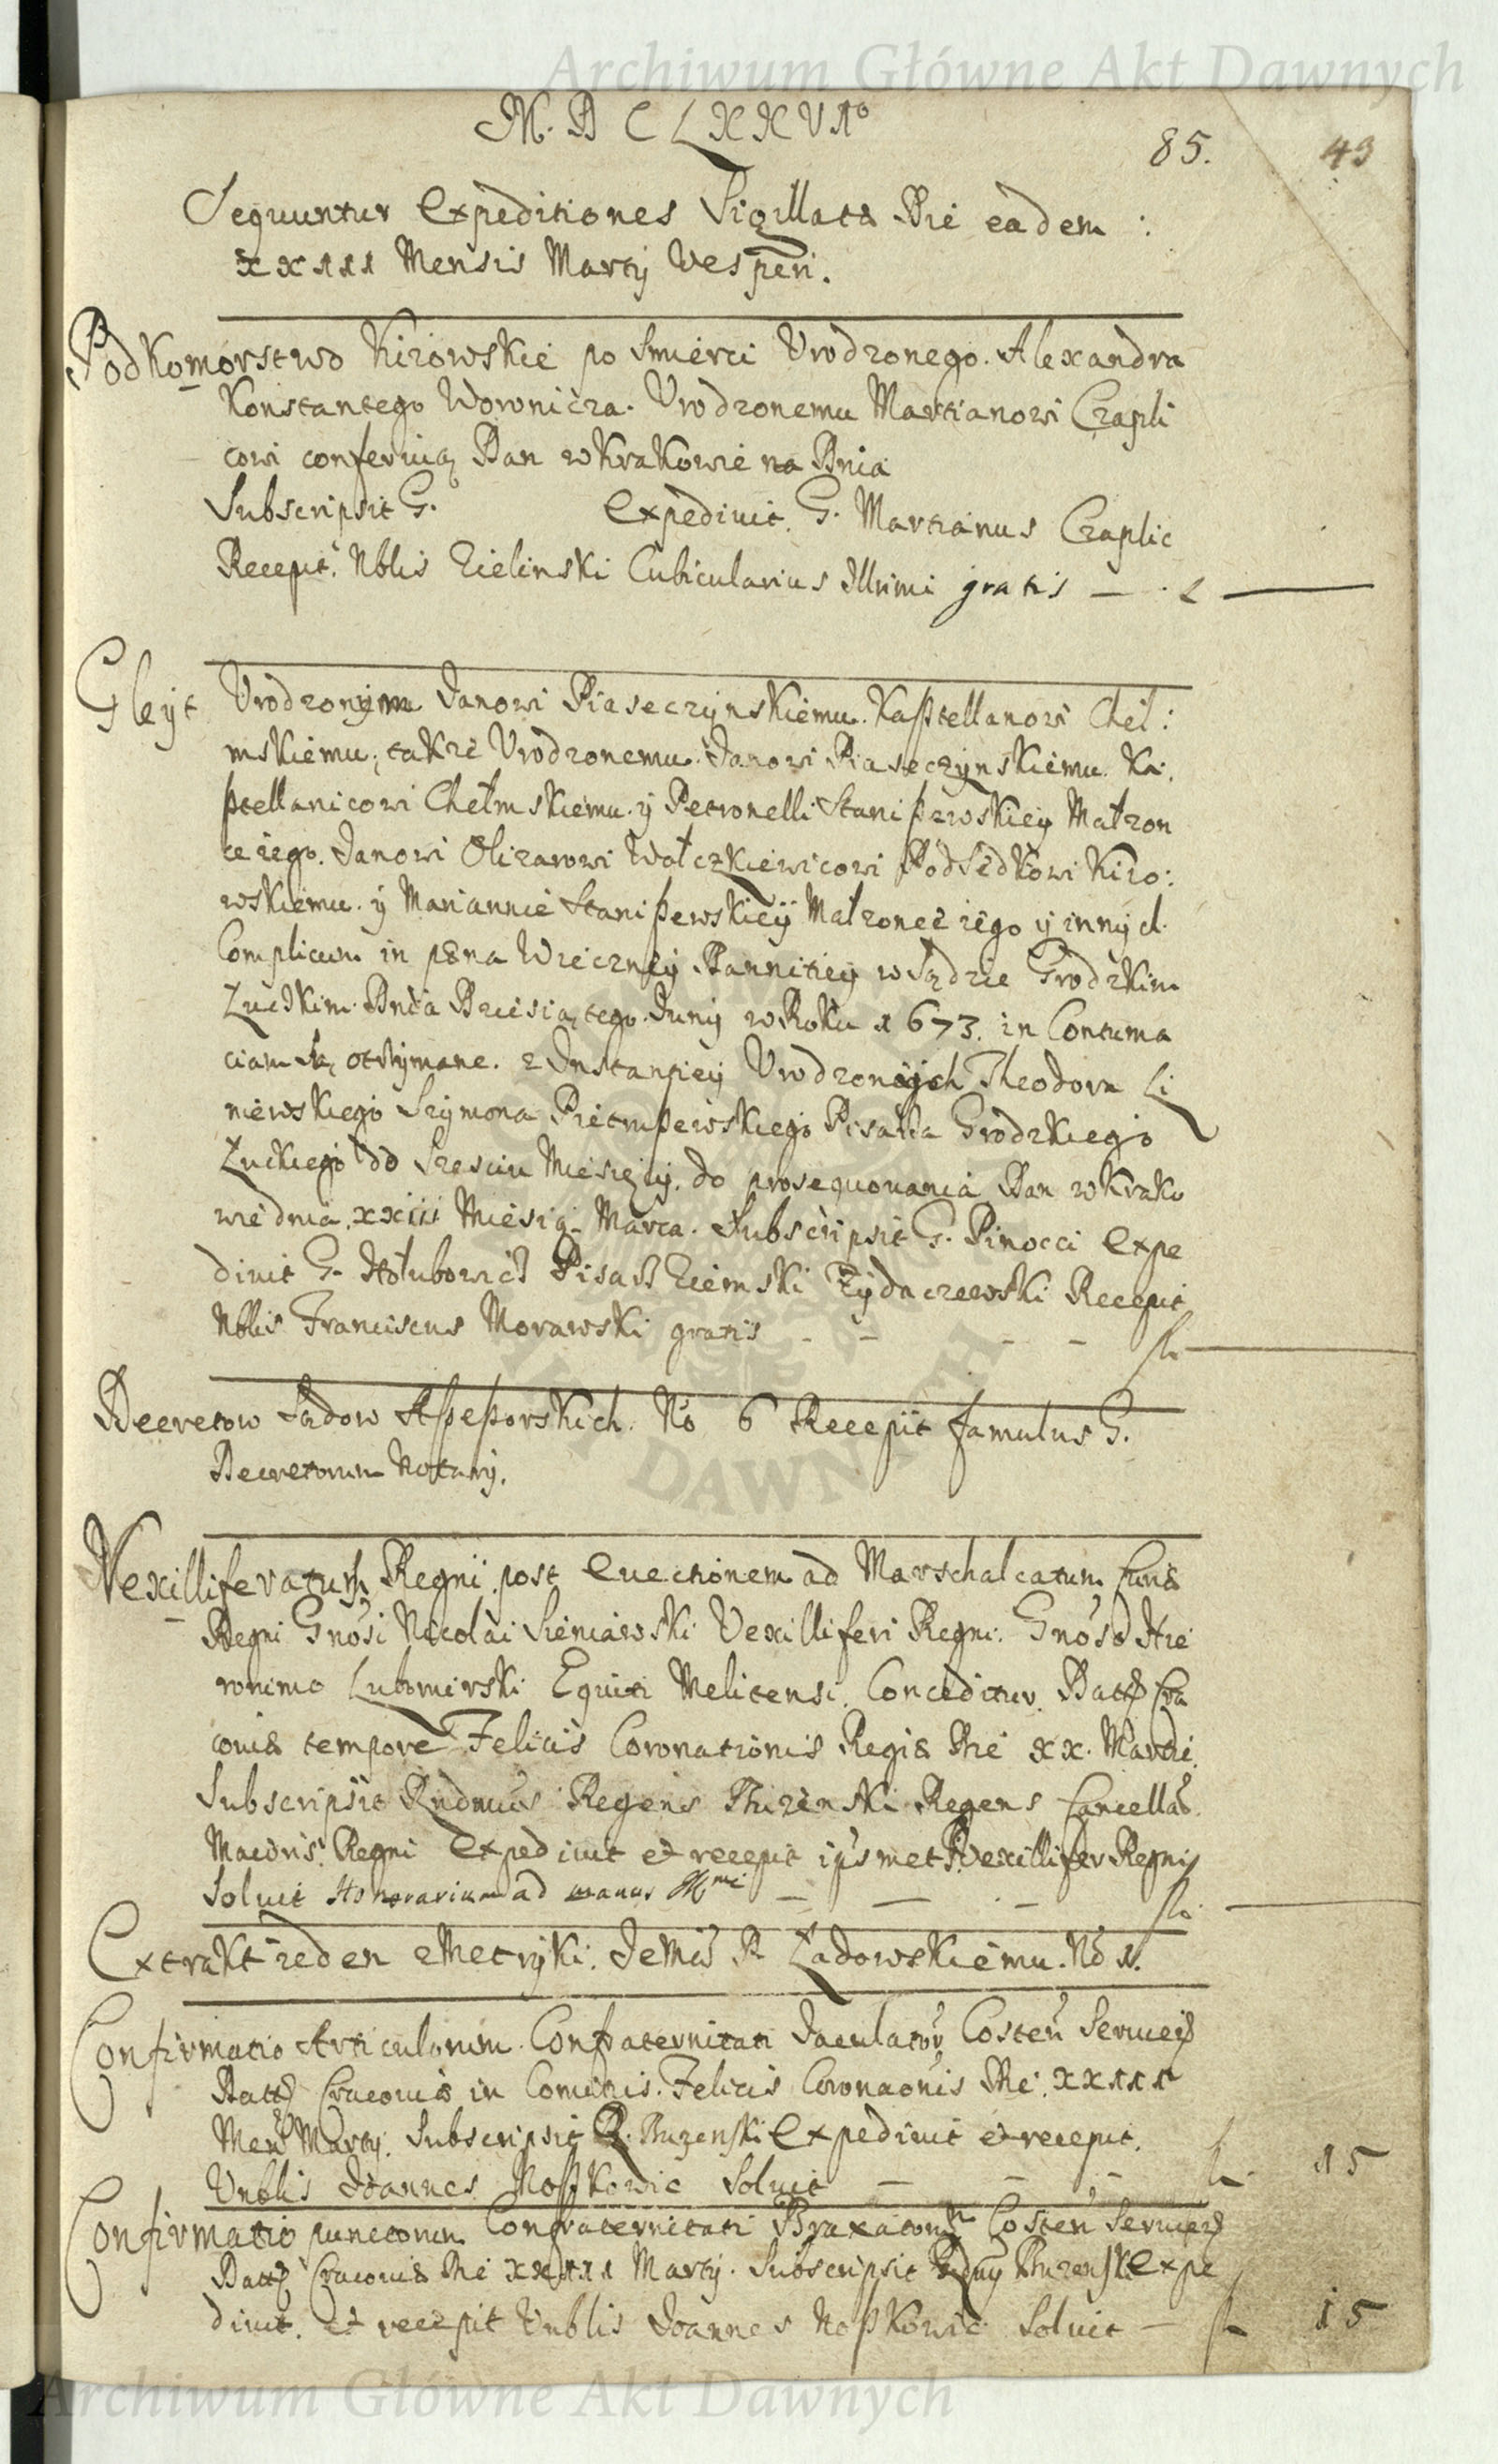 Archiwum Główne Akt Dawnych
M. D C L X X V Iº
85. 43
Sequuntur Expeditiones Sigillatæ Die eadem :
xxııı Mensis Martij Vesperi.
Podkomorstwo Kiiowskie po Smierci Vrodzonego Alexandra
Konstantego Woronicza. Vrodzonemu Martianowi Czapli
cowi conferuią Dan w Krakowie na Dnia
Subscripsit G. Expediuit G. Martianus Czaplic
Recepit Nblis Zielinski Cubicularius Illrimi gratis
Gleyt Vrodzonym Janowi Piaseczynskiemu Kaßtellanowi Cheł:
mskiemu, także Vrodzonemu Janowi Piaseczynskiemu Ka:
ßtellanicowi Chełmskiemu y Petronelli Staniszewskiey Małzon
ce iego. Janowi Olizarowi Wołczkiewicowi Podsędkowi Kiio:
wskiemu y Mariannie Stanißewskiey Małzonce iego y innych
Complicum in pœna Wieczney Bannitiey w Sądzie Grodzkim
Łuckim Dnia Dziesiątego Juny w Roku 1673. in Contuma
ciam są otrzymane. z Instantiey Vrodzonych Theodora Li
niewskiego Szymona Pisarza Grodzkiego
Łuckiego do Szesciu Miesięcy, do prosequowania Dan w Krako
wie dnia xxiii Miesią Marca. Subscripsit G. Pinocci Expe
diuit G. Hołubowicz Pisarz Ziemski Zydaczewski Recepit
Nblis Franciscus Morawski gratis
Decretow Sądow Aßeßorskich. No 6 Recepit famulus G.
Decretorum Notarij.
Vexilliferatum Regni post Euectionem ad Marschalcatum Curiæ
Regni Gnosi Nicolai Sieniawski Vexilliferi Regni. Gnoso Hie
ronimo Lubomirski Equiti Melitensi. Conceditur. Datt Cra
couiæ tempore Felicis Coronationis Regiæ Die xx. Martii.
Subscripsit Rndmus Regens Cancellar
Maioris Regni Expediuit et recepit ipsmet Vexillifer Regni
Soluit Honorarium ad manus
Extrakt ieden Metryki. Jemu P Ładowskiemu. No 1.
Confirmatio Articulorum Confraternitati Jaculator Costen Seruien
Datt Cracouiæ in Comitiis Felicis Coronaonis Die xxııı
Mens Martij. Subscripsit R. Expediuit et recepit.
Vnblis Joannes Noßkowic Soluit 15
Confirmatio punctorum Confraternitati Braxatorum Costen Seruien
Datt Cracouiæ Die xxııı Martij. Subscripsit Expe
diuit. Et recepit Vnblis Joannes Noßkowic Soluit 15
Archiwum Główne Akt Dawnych